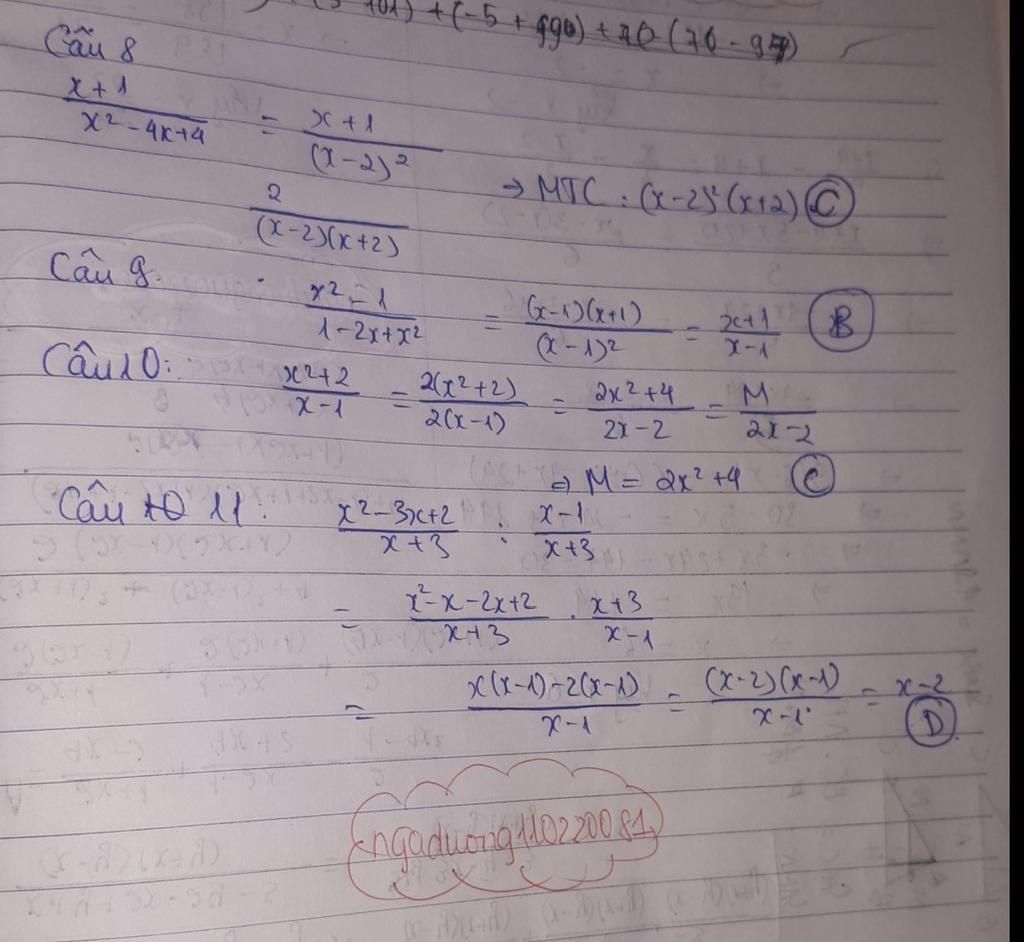 + (-5 + 990) + 70 (70 - 97)
Câu 8
x+1 / x² - 4x+4 = x+1 / (x-2)²
2 / (x-2)(x+2) → MTC : (x-2)²(x+2) C
Câu 9. x² - 1 / 1-2x+x² = (x-1)(x+1) / (x-1)² = x+1 / x-1 B
Câu 10: x²+2 / x-1 = 2(x²+2) / 2(x-1) = 2x²+4 / 2x-2 = M / 2x-2
⇒ M = 2x²+4 C
Câu 10 11: x²-3x+2 / x+3 : x-1 / x+3
= x²-x-2x+2 / x+3 . x+3 / x-1
= x(x-1)-2(x-1) / x-1 = (x-2)(x-1) / x-1 = x-2
D
ngaduong110220081